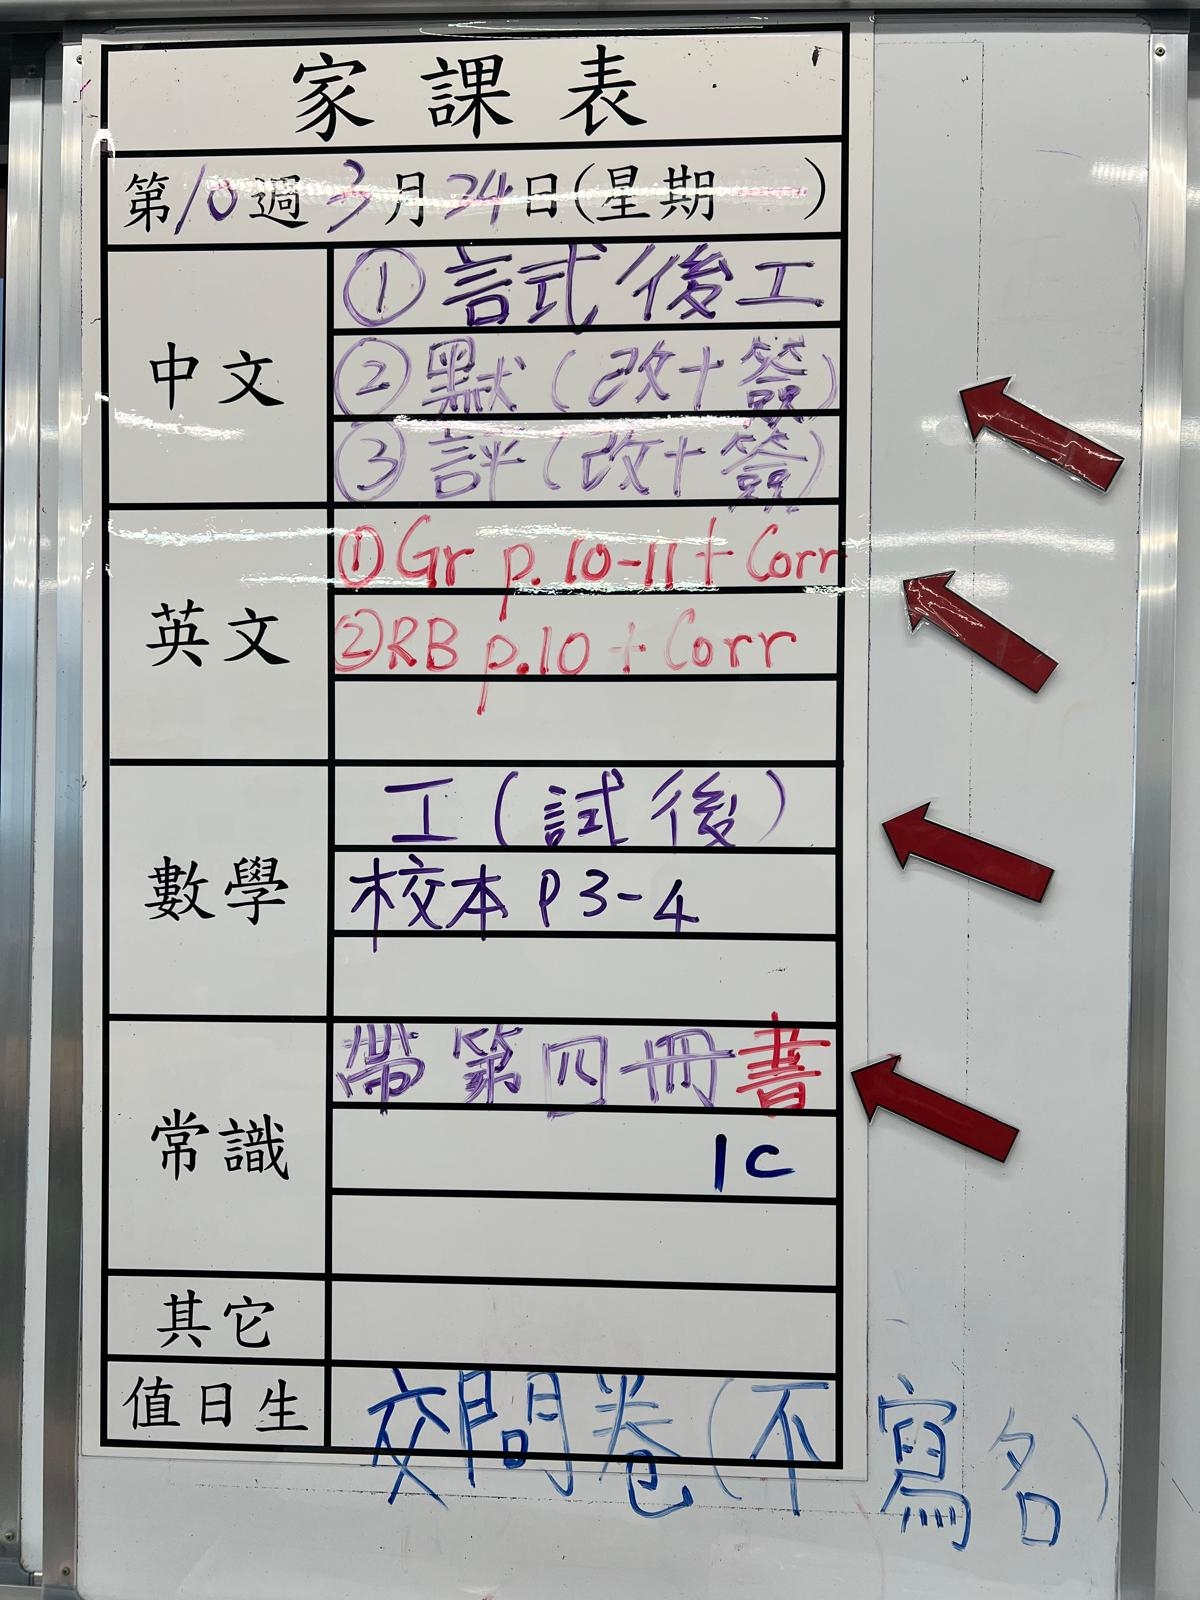 家課表
第10週3月24日(星期 一 )
中文
①試後工
②默(改+簽)
③評(改+簽)
英文
①Gr p.10-11 + Corr
②RB p.10 + Corr
數學
工(試後)
校本 P3-4
常識
帶第四冊書
1C
其它
值日生
交問卷(不寫名)